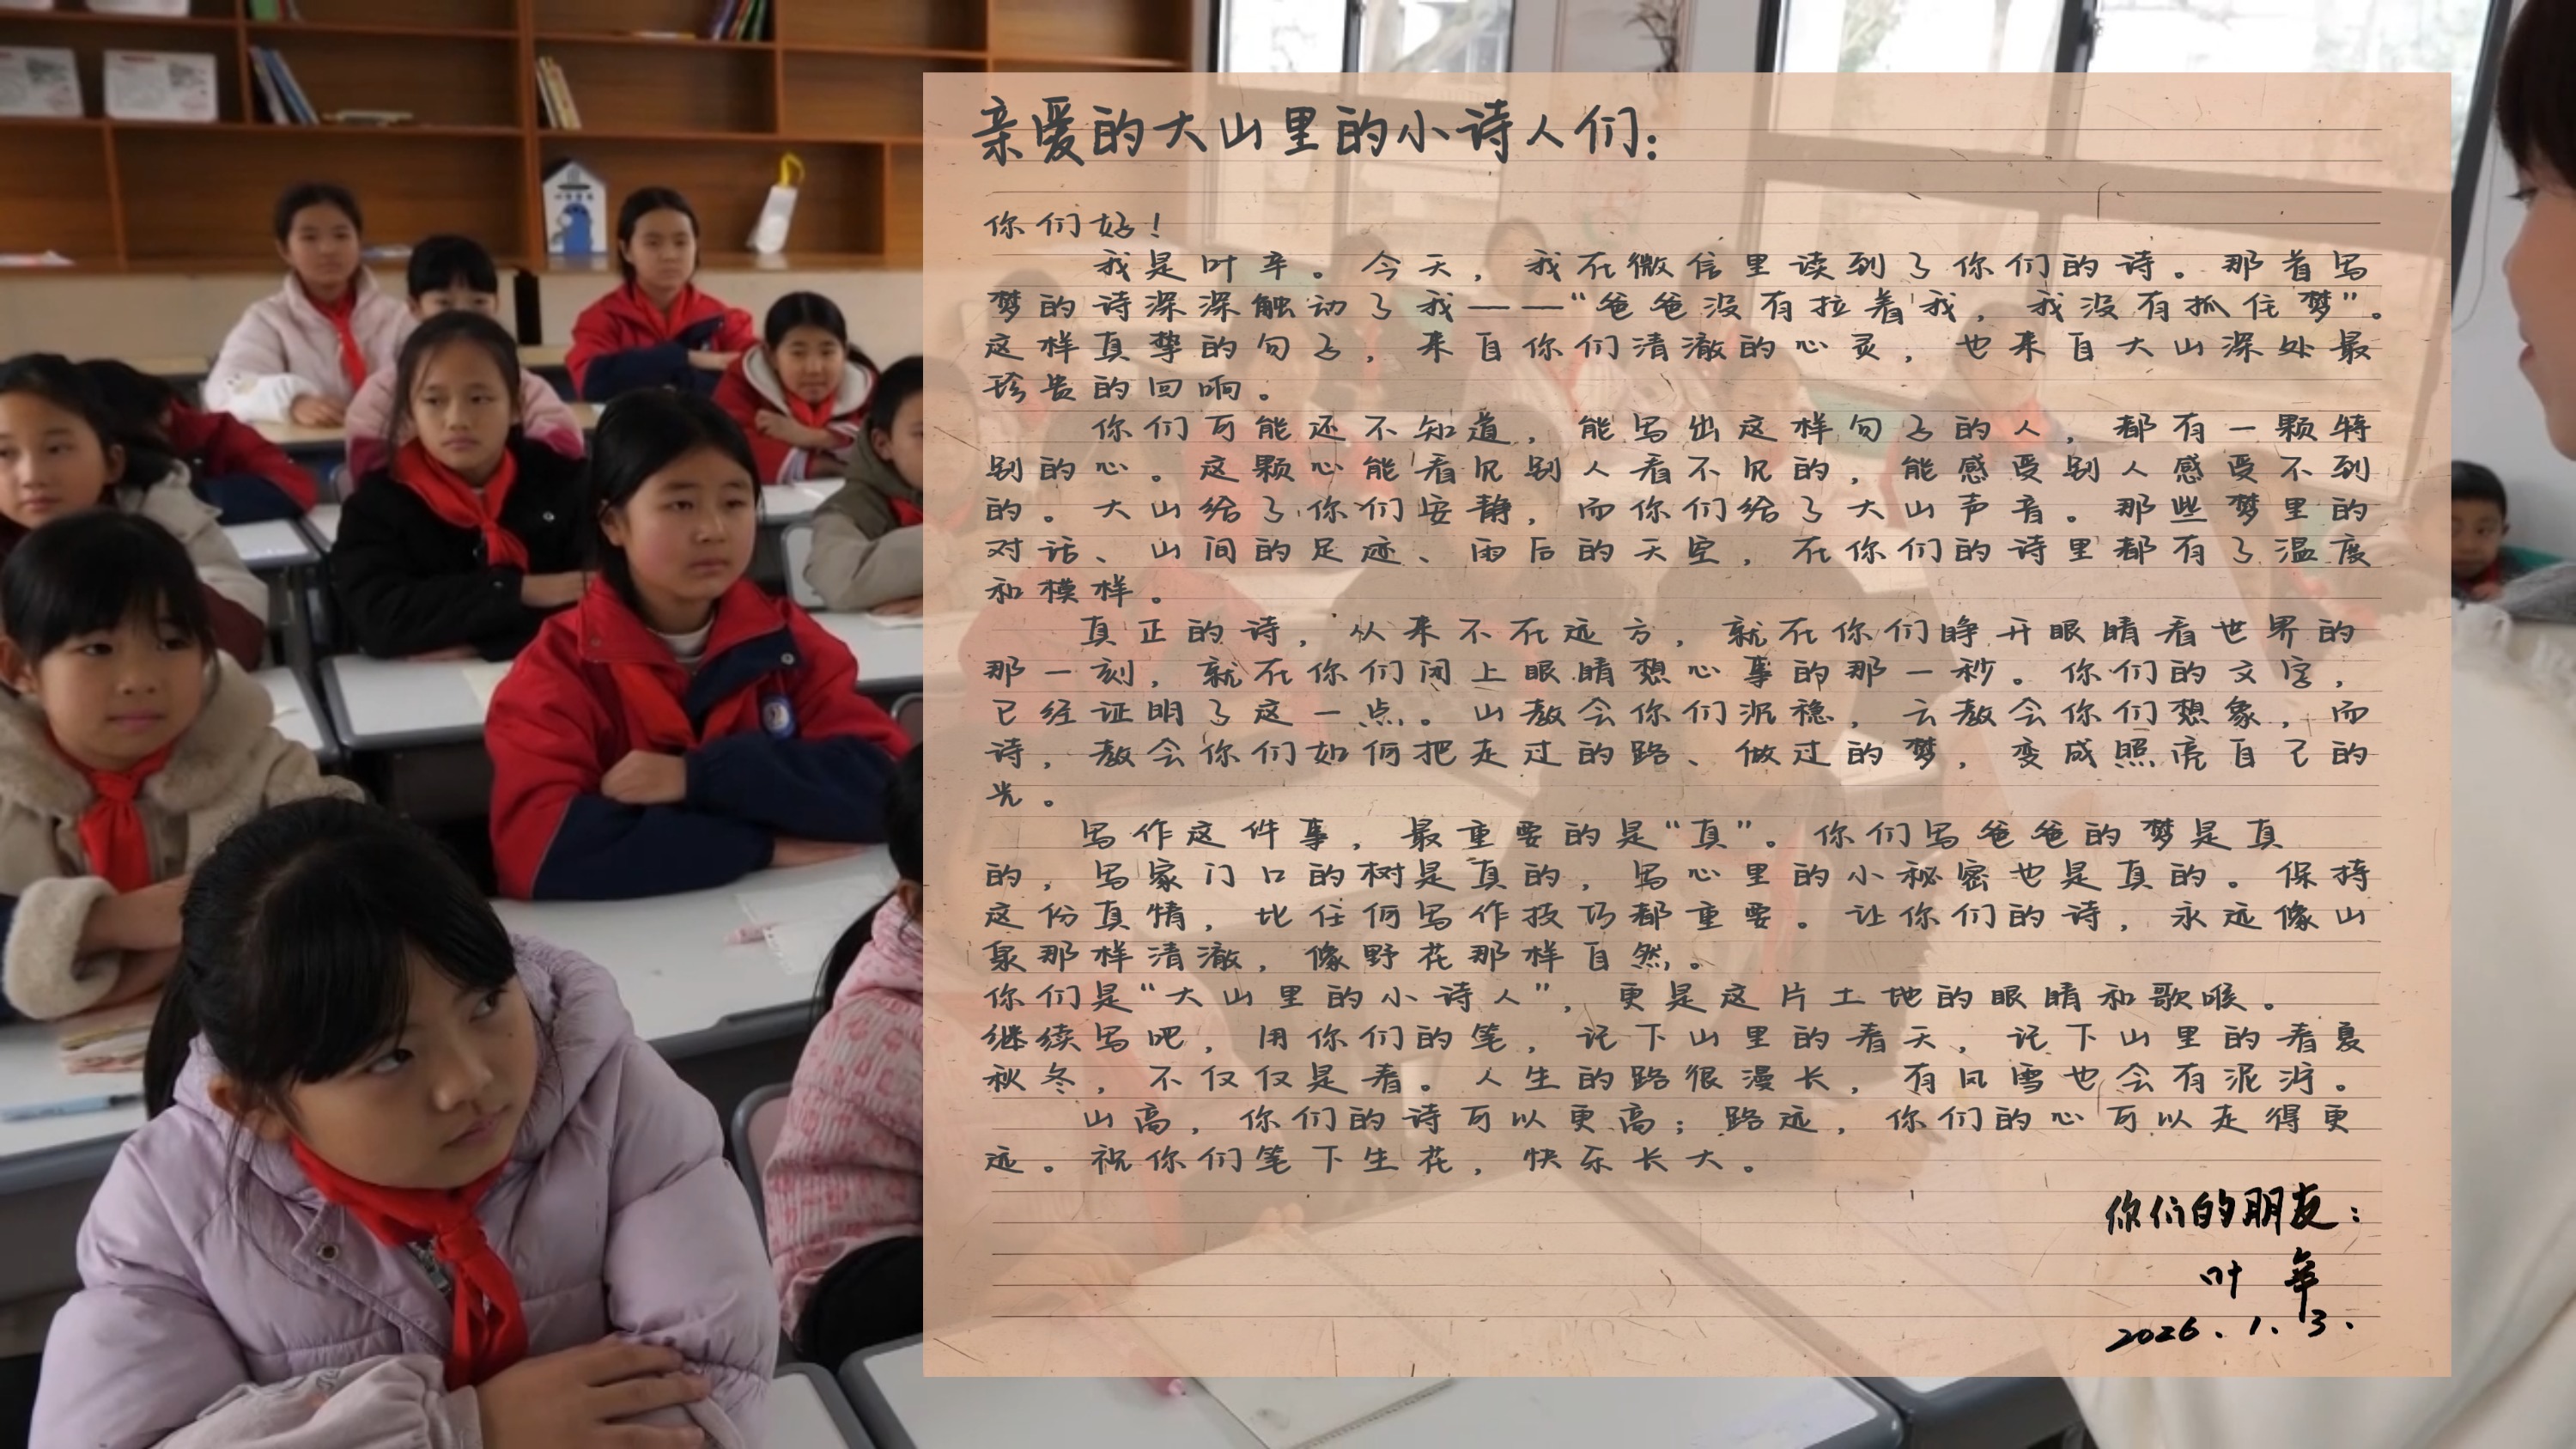 亲爱的大山里的小诗人们：
你们好！
我是叶辛。今天，我在微信里读到了你们的诗。那首写
梦的诗深深触动了我——“爸爸没有拉着我，我没有抓住梦”。
这样真挚的句子，来自你们清澈的心灵，也来自大山深处最
珍贵的回响。
你们可能还不知道，能写出这样句子的人，都有一颗特
别的心。这颗心能看见别人看不见的，能感受别人感受不到
的。大山给了你们安静，而你们给了大山声音。那些梦里的
对话、山间的足迹、雨后的天空，在你们的诗里都有了温度
和模样。
真正的诗，从来不在远方，就在你们睁开眼睛看世界的
那一刻，就在你们闭上眼睛想心事的那一秒。你们的文字，
已经证明了这一点。山教会你们沉稳，云教会你们想象，而
诗，教会你们如何把走过的路、做过的梦，变成照亮自己的
光。
写作这件事，最重要的是“真”。你们写爸爸的梦是真
的，写家门口的树是真的，写心里的小秘密也是真的。保持
这份真情，比任何写作技巧都重要。让你们的诗，永远像山
泉那样清澈，像野花那样自然。
你们是“大山里的小诗人”，更是这片土地的眼睛和歌喉。
继续写吧，用你们的笔，记下山里的春天，记下山里的春夏
秋冬，不仅仅是春。人生的路很漫长，有风雪也会有泥泞。
山高，你们的诗可以更高；路远，你们的心可以走得更
远。祝你们笔下生花，快乐长大。
你们的朋友：
叶辛
2026.1.3.